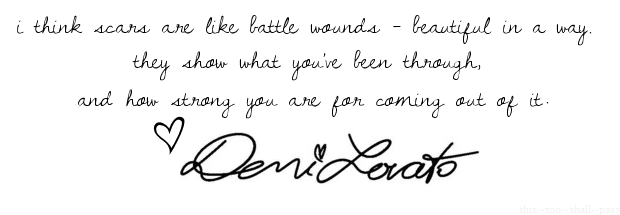 i think scars are like battle wounds - beautiful in a way.
they show what you've been through,
and how strong you are for coming out of it.
Demi Lovato
this--too--shall--pass